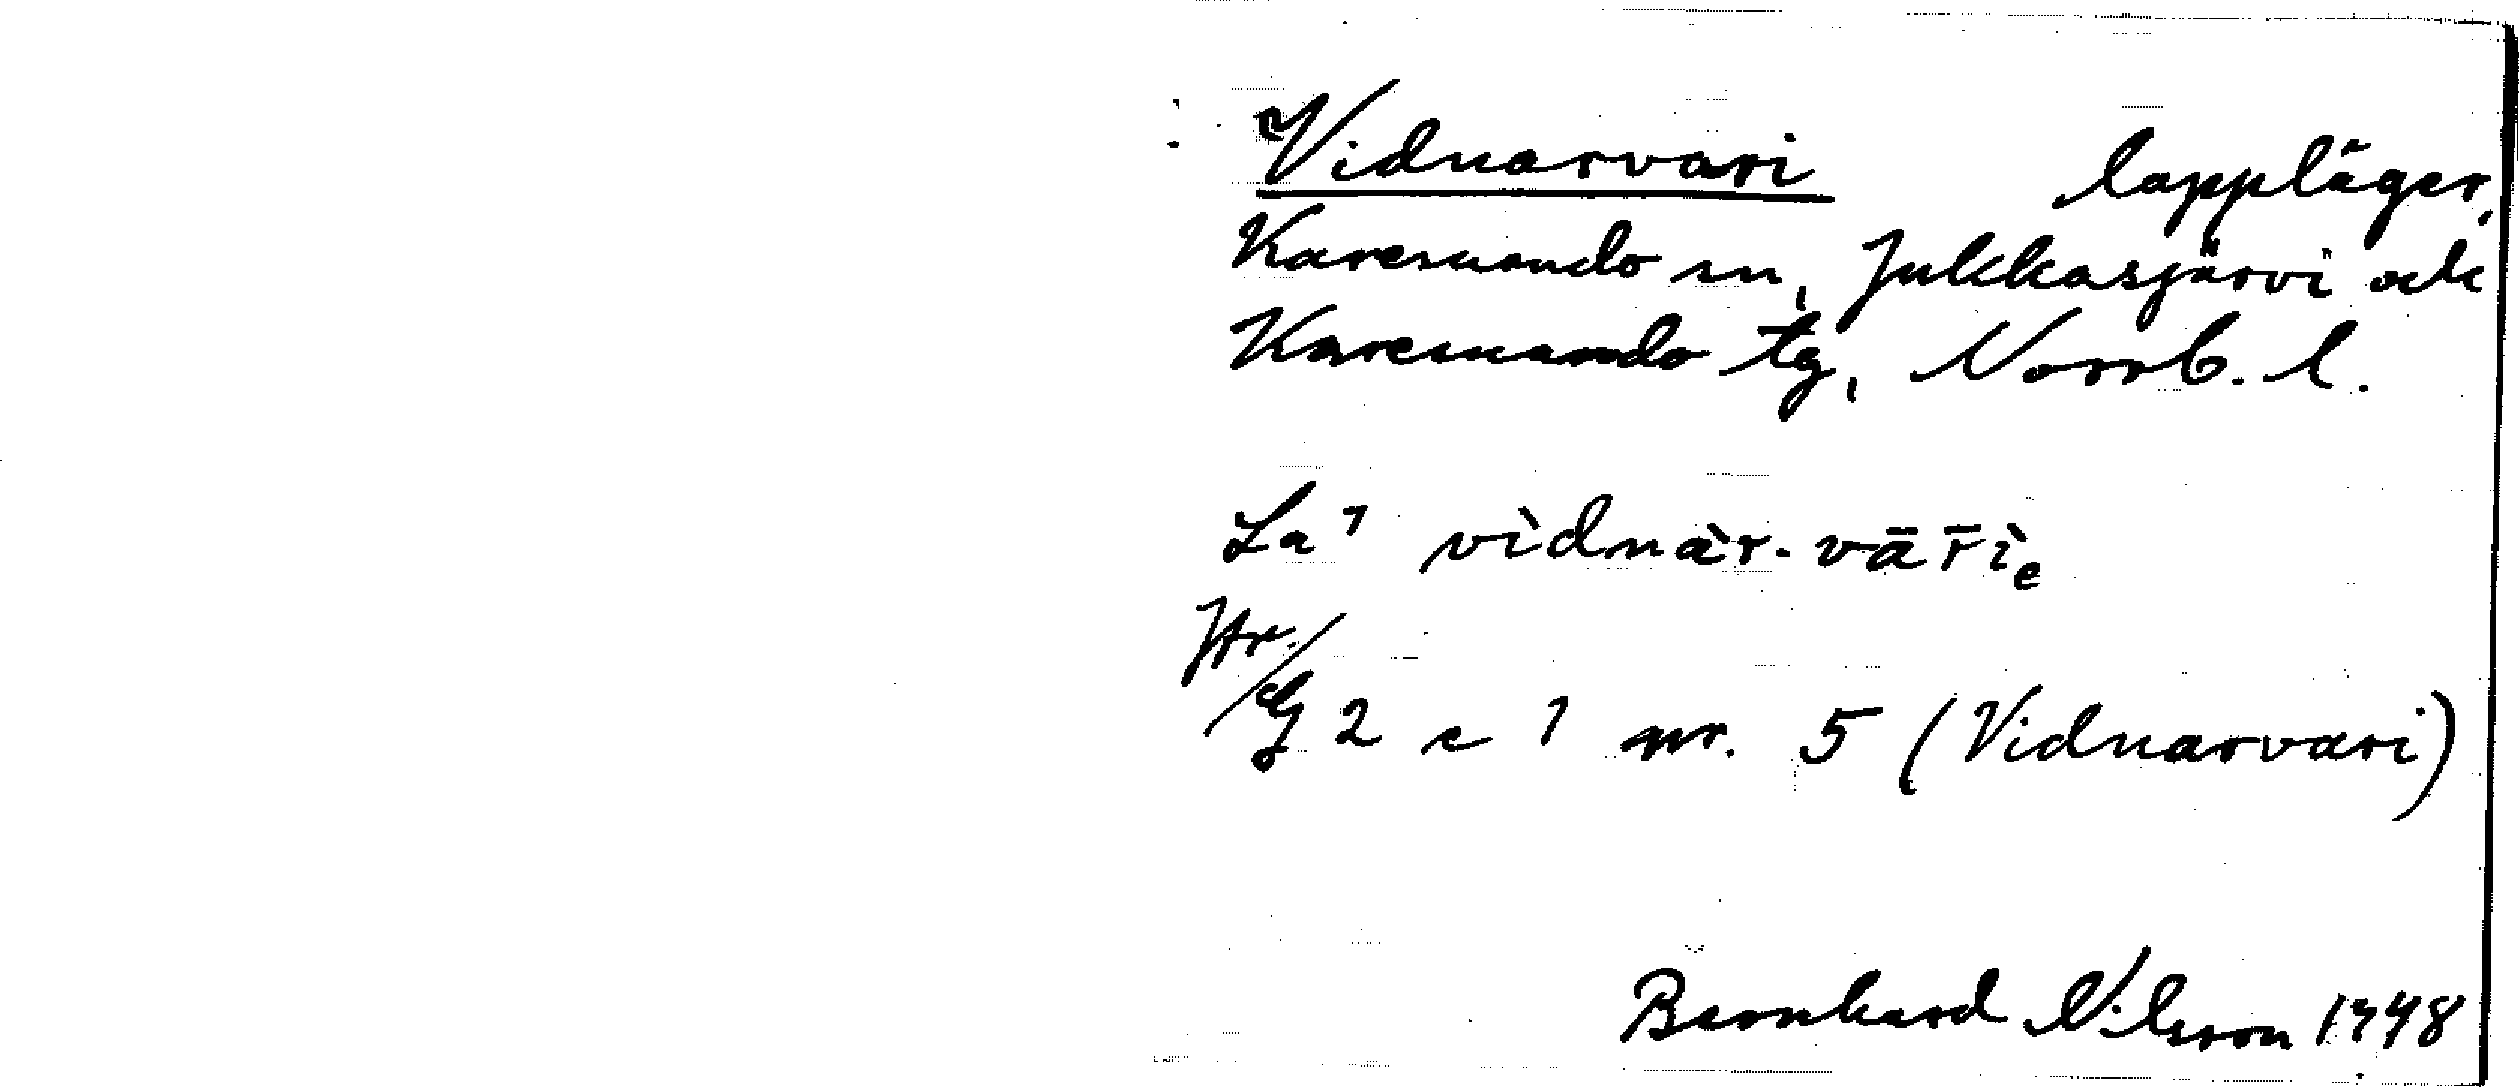 Vidnarvari lappläger,
Karesuando sn, Jukkasjärvi och
Karesuando tg, Norrb. l.
La 1 vìdnàr-vārìe
Hr.
/G 2 c 1 nr. 5 (Vidnarvari)
Bernhard Nilsson 1948